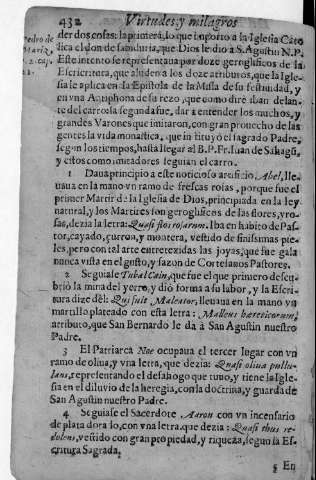 432 Virtudes, y milagros
Pedro de
Mariz,
2. cap.
der dos cosas: la primera, lo que importò a la Iglesia Cato
lica el don de sabiduria, que Dios le dio a S. Agustin N.P.
Este intento se representaua por doze geroglificos de la
Escricritura, que aluden a los doze atributos, que la Igle-
sia le aplica en la Epistola de la Missa de su festiuidad, y
en vna Antiphona de su rezo, que como dirè iban delan-
te del carro: la segunda fue, dar a entender los muchos, y
grandes Varones que imitaron, con gran prouecho de las
gentes la vida monastica, que instituyó el sagrado Padre,
segun los tiempos, hasta llegar al B.P. Fr. Iuan de Sahagũ,
y estos como imitadores seguian el carro.
1 Daua principio a este noticioso artificio, Abel, lle-
uaua en la mano vn ramo de frescas rosas, porque fue el
primer Martir de la Iglesia de Dios, principiada en la ley
natural, y los Martires son geroglificos de las flores, y ro-
sas, dezia la letra: Quasi flos rosarum. Iba en habito de Pas-
tor, cayado, çurron, y montera, vestido de finissimas pie-
les, pero con tal arte entretexidas las joyas, que se gala
nunca vista en el gusto, y sazon de Cortesanos Pastores.
2 Seguiale Tubal Cain, que fue el que primero descu-
brió la mina del yerro, y diò forma a su labor, y la Escri-
tura dize dèl: Qui fuit Maleator, lleuaua en la mano vn
martillo plateado con esta letra: Malleus hæreticorum,
atributo, que San Bernardo le dà à San Agustin nuestro
Padre.
3 El Patriarca Noe ocupaua el tercer lugar con vn
ramo de oliua, y vna letra, que dezia: Quasi oliua pullu-
lans, representando el desahogo que tuuo, y tiene la Igle-
sia en el diluvio de la heregia, con la doctrina, y guarda de
San Agustin nuestro Padre.
4 Seguiase el Sacerdote Aaron con vn incensario
de plata dorado, con vna letra, que dezia: Quasi thus re-
dolens, vestido con gran propiedad, y riqueza, segun la Es-
critura Sagrada.
5 En